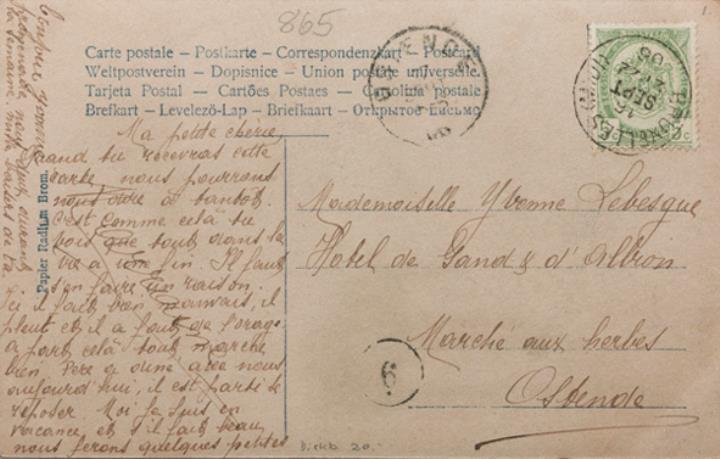 865
1.
Carte postale – Postkarte – Correspondenzkart – Postcard
Weltpostverein – Dopisnice – Union postale universelle.
Tarjeta Postal – Cartões Postaes – Cartolina postale
Brefkart – Levelező-Lap – Briefkaart – Открытое Письмо
OSTENDE
BRUXELLES
16
SEPT
22
08
Papier Radium Brom.
Ma petite chérie,
Quand tu recevras cette
carte nous pourrons
nous dire à tantôt.
C'est comme celà tu
vois que tout dans la
vie a une fin. Il faut
s'en faire un raison.
Ici il fait bien mauvais, il
pleut et il a fait de l'orage.
a part celà tout marche
bien. Père a diné avec nous
aujourd'hui, il est parti se
reposer. Moi je suis en
vacance et s'il fait beau
nous ferons quelques petites
promenades
la semaine. mille baisers de ta
Mademoiselle Yvonne Lebesgue
Hôtel de Gand & d'Albion
Marché aux herbes
Ostende
6
20.-